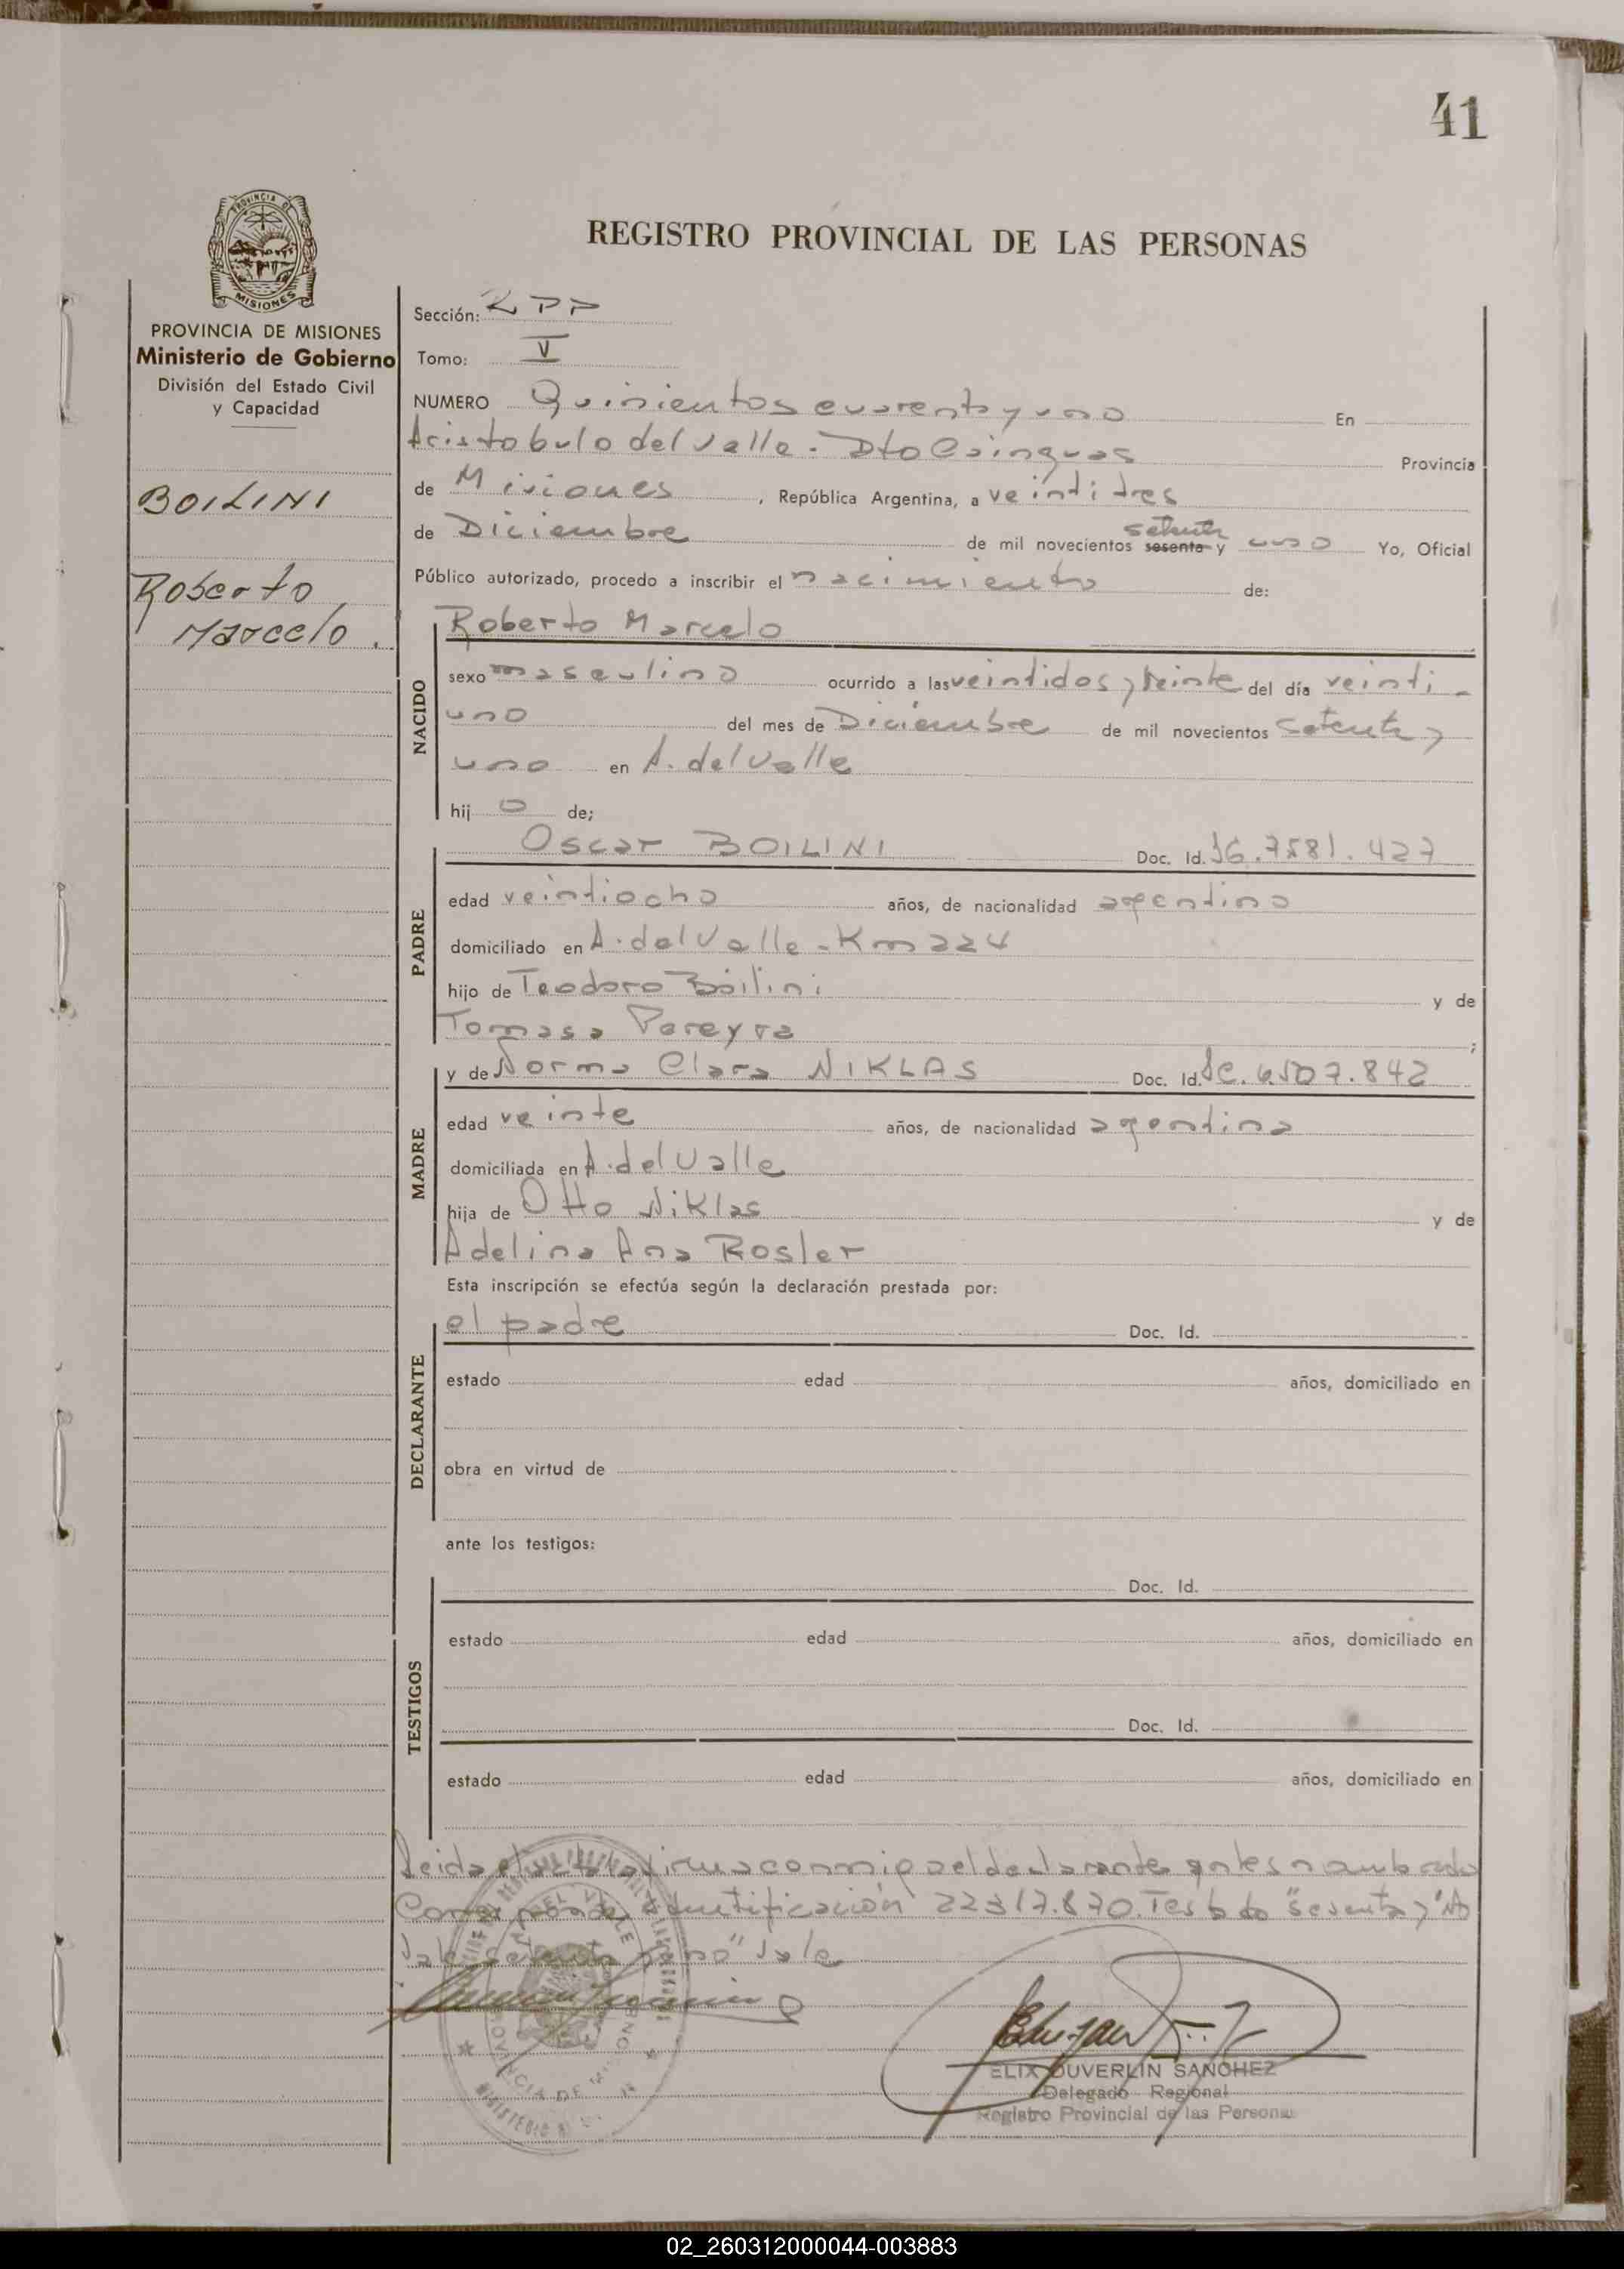 41
REGISTRO PROVINCIAL DE LAS PERSONAS
PROVINCIA DE MISIONES
Ministerio de Gobierno
División del Estado Civil
y Capacidad
BOILINI
Roberto
Marcelo.
Sección: RPP
Tomo: V
NUMERO Quinientos cuarenta y uno En
Aristobulo del Valle - Dto Cainguas Provincia
de Misiones, República Argentina, a veintitres
setenta
de Diciembre de mil novecientos sesenta y uno Yo, Oficial
Público autorizado, procedo a inscribir el nacimiento de:
Roberto Marcelo
NACIDO
sexo masculino ocurrido a las veintidos y treinta del día veinti-
uno del mes de Diciembre de mil novecientos setenta y
uno en A. del Valle
hij o de;
Oscar BOILINI Doc. Id.
PADRE
edad veintiocho años, de nacionalidad argentino
domiciliado en A. del Valle - Km 224
hijo de Teodoro Boilini y de
Tomasa Pereyra ;
y de Norma Clara NIKLAS Doc. Id. 6.507.842
MADRE
edad veinte años, de nacionalidad argentina
domiciliada en A. del Valle
hija de Otto Niklas y de
Adelina Ana Rosler
Esta inscripción se efectúa según la declaración prestada por:
el padre Doc. Id.
DECLARANTE
estado edad años, domiciliado en
obra en virtud de
ante los testigos:
Doc. Id.
TESTIGOS
estado edad años, domiciliado en
Doc. Id.
estado edad años, domiciliado en
Leida el acta la firma conmigo el declarante antes nombrado
Corresponde identificación 22317.870. Testado "sesenta y" No
Vale "setenta uno" Vale
ELIX DUVERLIN SANCHEZ
Delegado Regional
Registro Provincial de las Personas
02_260312000044-003883